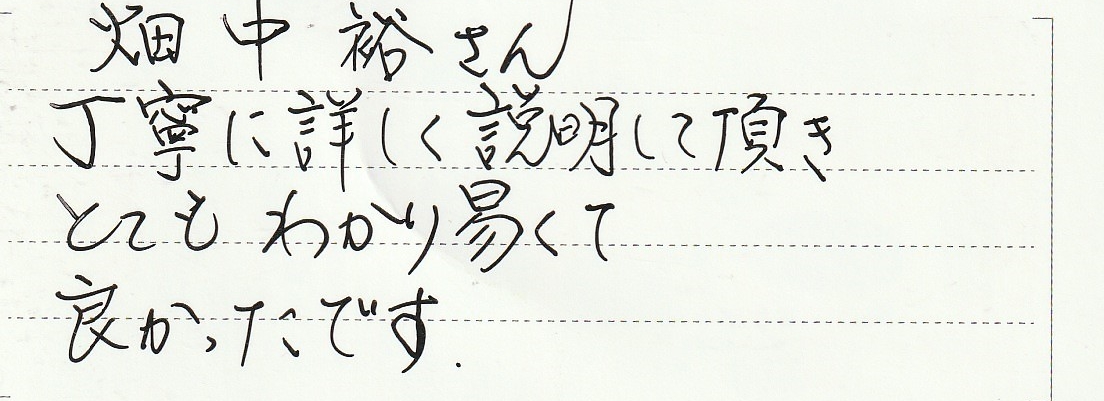 畑中裕さん
丁寧に詳しく説明して頂き
とてもわかり易くて
良かったです.